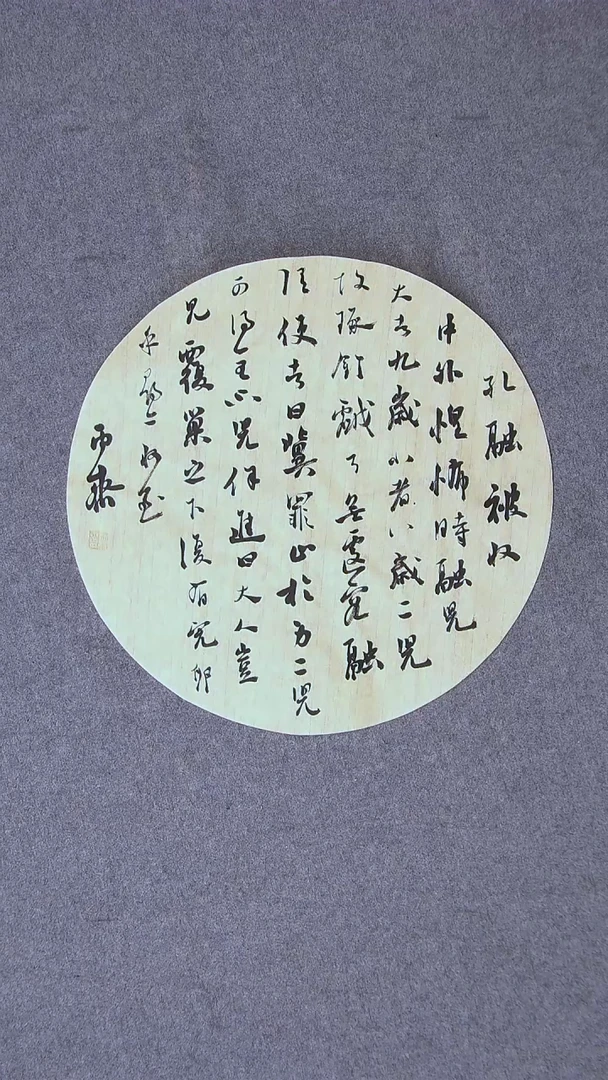 孔融被收
中外惶怖時融兒
大者九歲小者八歲二兒
故琢釘戲了無遽容融
謂使者曰冀罪止於身二兒
可得全不兒徐進曰大人豈
見覆巢之下復有完卵
乎尋亦收至
雨齋